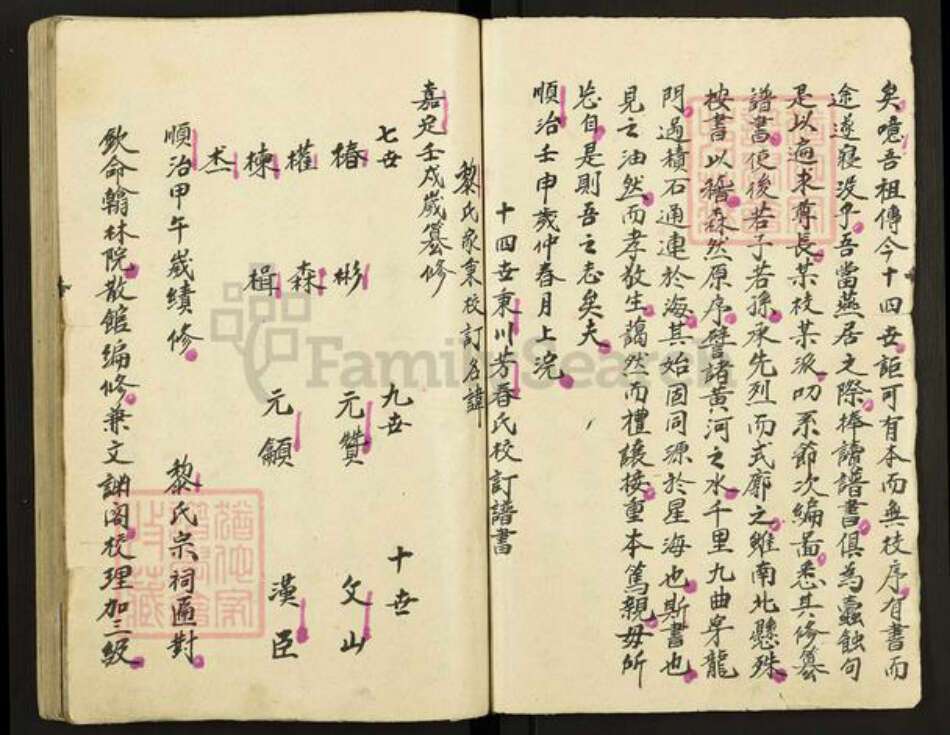 矣噫吾祖傳今十四世詎可有本而無枝序有書而
途遂寢没乎吾當燕居之際捧讀譜書俱為蠹蝕句
是以遍求尊長某枝某派叨系節次編啚悉其修纂
譜書使後若子若孫承先烈而式廓之雖南北懸殊
按書以稽森然原序譬諸黃河之水千里九曲穿龍
門過積石通連於海其始固同源於星海也斯書也
見之油然而孝敬生藹然而禮讓接重本篤親毋所
忘自是則吾之志矣夫
順治壬申歲仲春月上浣
十四世東川芳春氏校訂譜書
黎氏家乘校訂名諱
嘉定壬戌歲纂修
七世 九世 十世
椿 彬 元贊 文山
權 森
棟 楫 元顧 漢臣
杰
順治甲午歲續修 黎氏宗祠匾對
欽命翰林院散館編修兼文淵阁校理加三級
FamilySearch